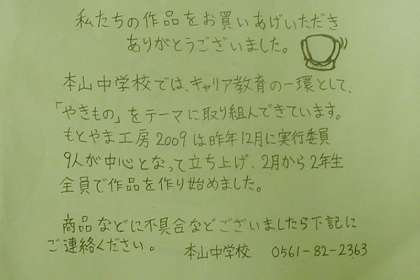 私たちの作品をお買いあげいただき
ありがとうございました。
本山中学校では、キャリア教育の一環として、
「やきもの」をテーマに取り組んできています。
もとやま工房2009は昨年12月に実行委員
9人が中心となって立ち上げ、2月から2年生
全員で作品を作り始めました。
商品などに不具合などございましたら下記に
ご連絡ください。 本山中学校 0561-82-2363